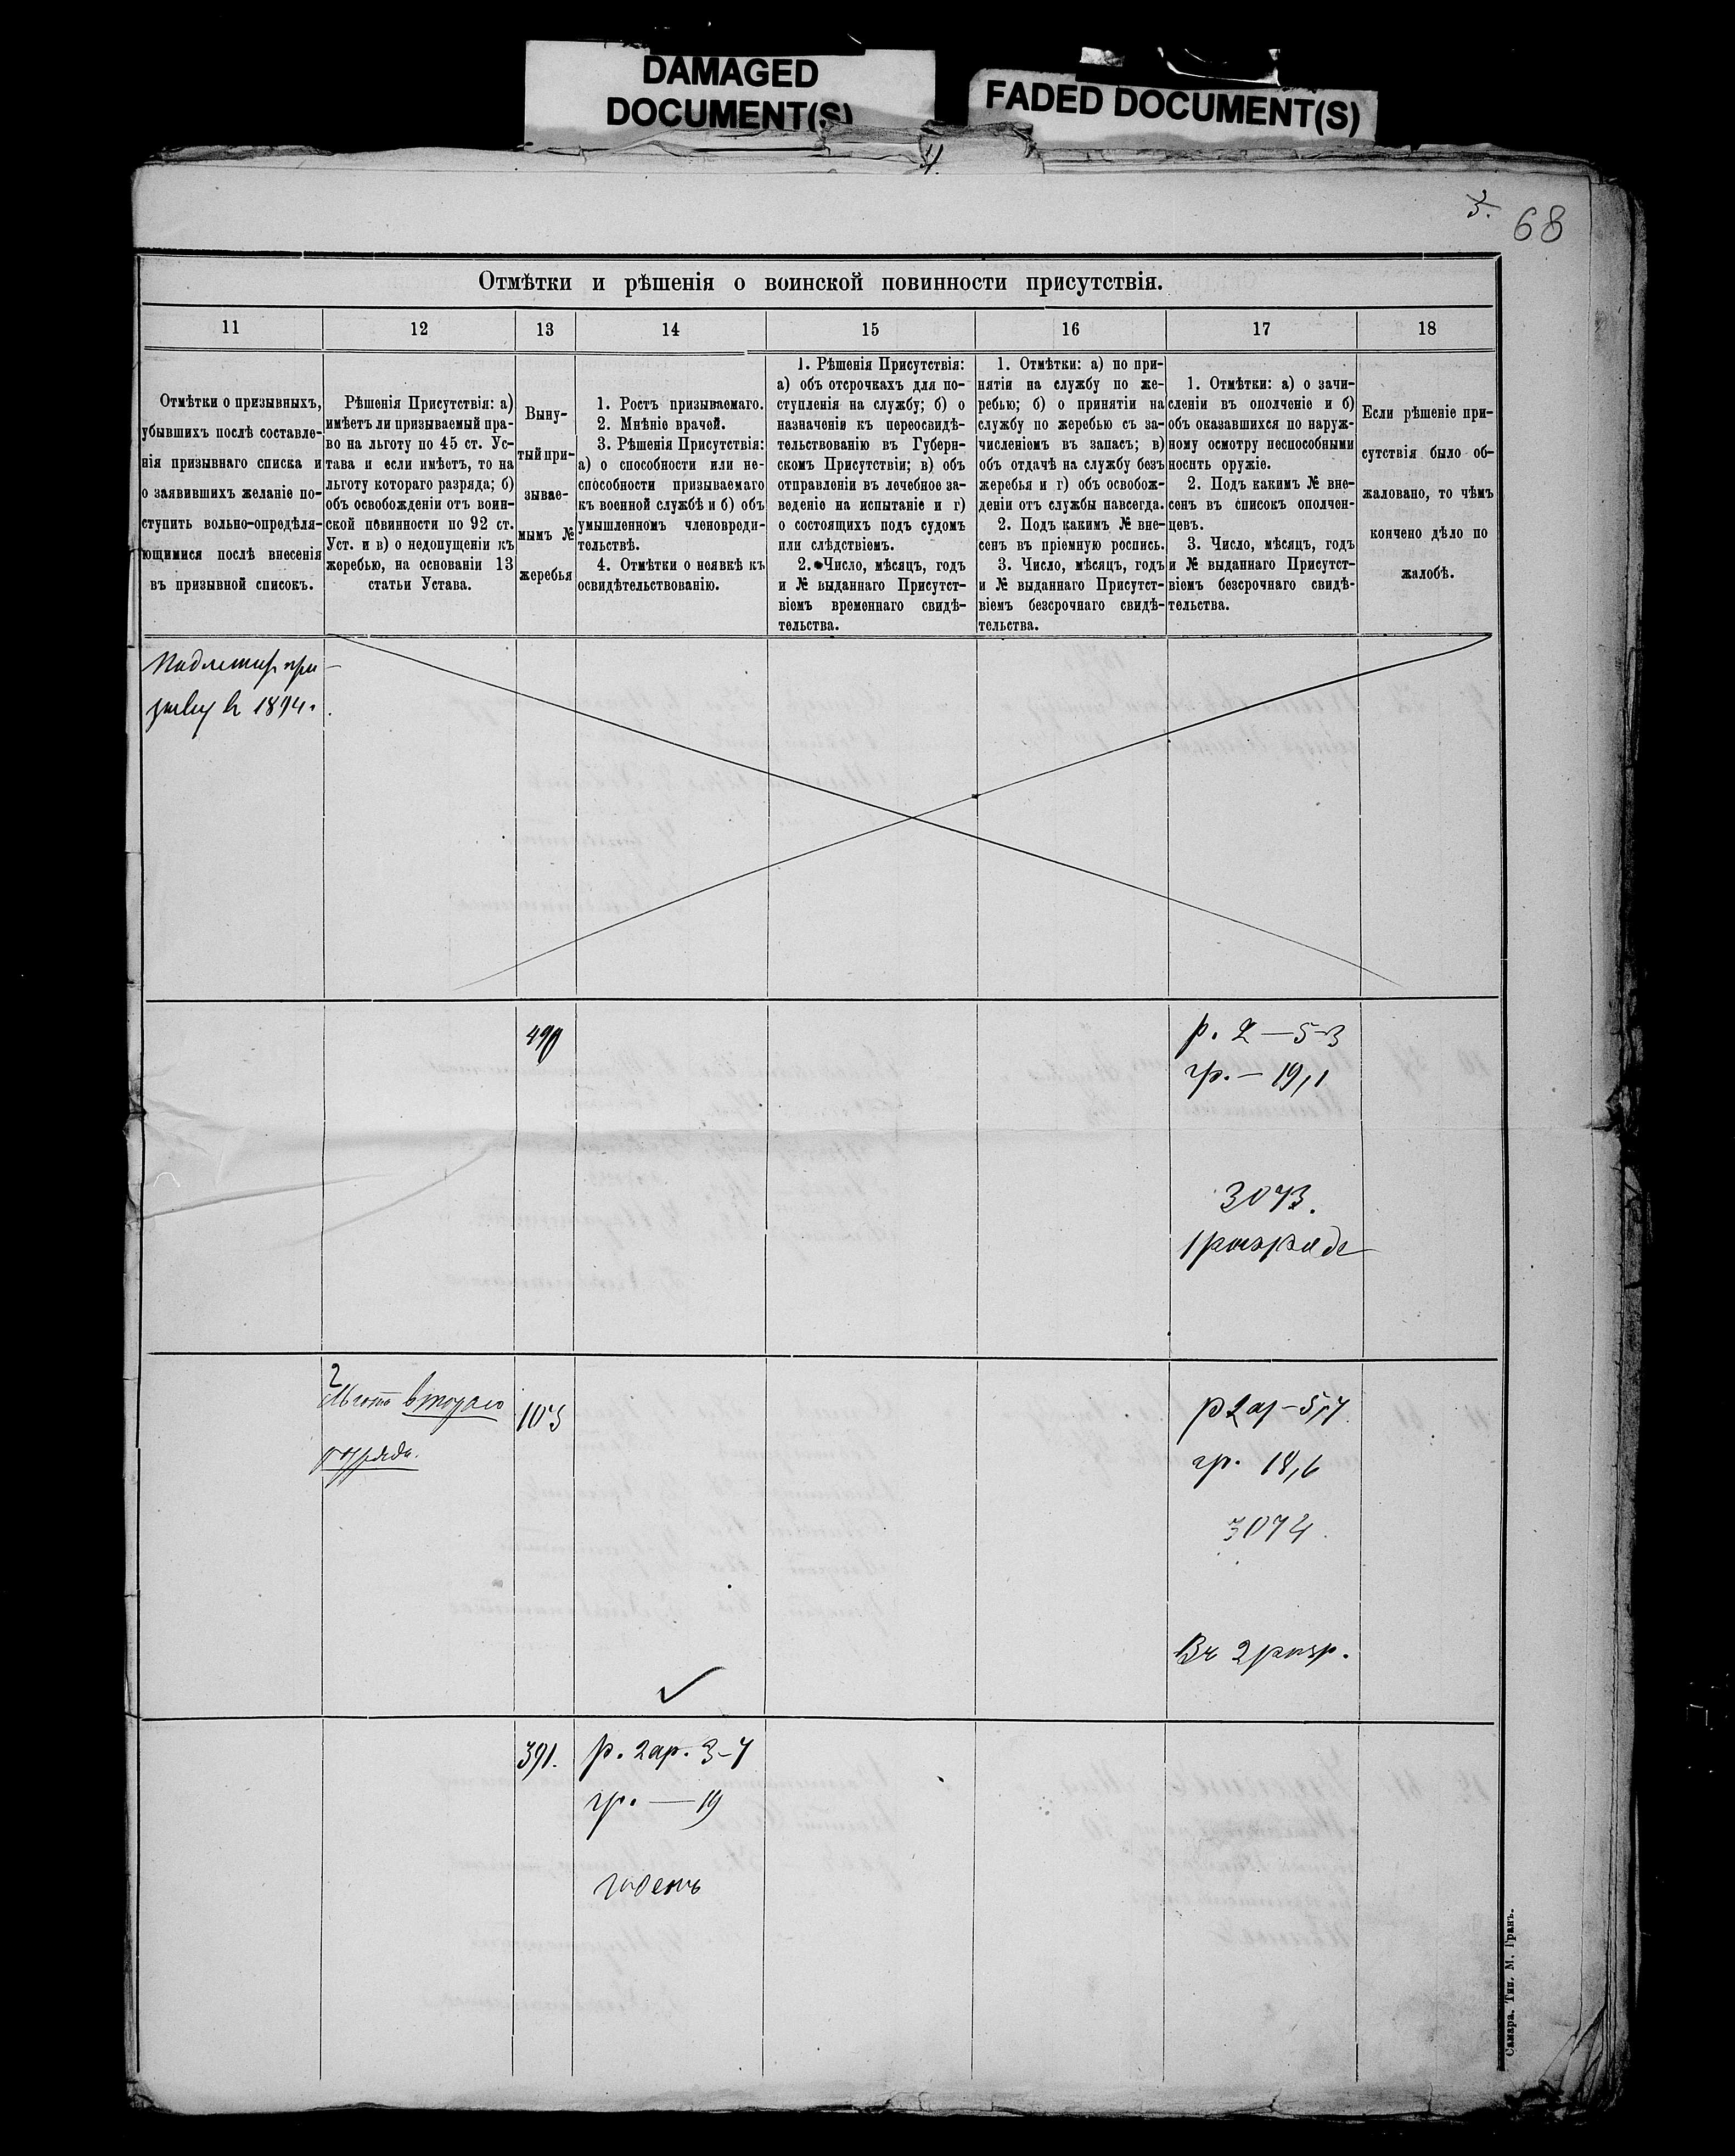 DAMAGED
DOCUMENT(S)
FADED DOCUMENT(S)
4.
3.
68
Отмѣтки и рѣшенія о воинской повинности присутствія.
11
12
13
14
15
16
17
18
Отмѣтки о призывныхъ,
убывшихъ послѣ составле-
нія призывнаго списка и
о заявившихъ желаніе по-
ступить вольно-опредѣля-
ющимися послѣ внесенія
въ призывной списокъ.
Рѣшенія Присутствія: а)
имѣетъ ли призываемый пра-
во на льготу по 45 ст. Ус-
тава и если имѣетъ, то на
льготу котораго разряда; б)
объ освобожденіи отъ воин-
ской повинности по 92 ст.
Уст. и в) о недопущеніи къ
жеребью, на основаніи 13
статьи Устава.
Выну-
тый при-
зывае-
мымъ №
жеребья
1. Ростъ призываемаго.
2. Мнѣніе врачей.
3. Рѣшенія Присутствія:
а) о способности или не-
способности призываемаго
къ военной службѣ и б) объ
умышленномъ членовреди-
тельствѣ.
4. Отмѣтки о неявкѣ къ
освидѣтельствованію.
1. Рѣшенія Присутствія:
а) объ отсрочкахъ для по-
ступленія на службу; б) о
назначеніи къ переосвидѣ-
тельствованію въ Губерн-
скомъ Присутствіи; в) объ
отправленіи въ лечебное за-
веденіе на испытаніе и г)
о состоящихъ подъ судомъ
или слѣдствіемъ.
2. Число, мѣсяцъ, годъ
и № выданнаго Присутст-
віемъ временнаго свидѣ-
тельства.
1. Отмѣтки: а) по при-
нятіи на службу по же-
ребью; б) о принятіи на
службу по жеребью съ за-
численіемъ въ запасъ; в)
объ отдачѣ на службу безъ
жеребья и г) объ освобож-
деніи отъ службы навсегда.
2. Подъ какимъ № вне-
сенъ въ пріемную роспись.
3. Число, мѣсяцъ, годъ
и № выданнаго Присутст-
віемъ безсрочнаго свидѣ-
тельства.
1. Отмѣтки: а) о зачи-
сленіи въ ополченіе и б)
объ оказавшихся по наруж-
ному осмотру неспособными
носить оружіе.
2. Подъ какимъ № вне-
сенъ въ списокъ ополчен-
цевъ.
3. Число, мѣсяцъ, годъ
и № выданнаго Присутст-
віемъ безсрочнаго свидѣ-
тельства.
Если рѣшеніе при-
сутствія было об-
жаловано, то чѣмъ
кончено дѣло по
жалобѣ.
Подлежит при-
зыву в 1894.
490
р. 2 — 5-3
гр. — 19,1
3073.
1 разряде
Льгота втораго
разряда.
103
р 2 ар - 5,7
гр. 18,6
3074.
Въ 2 разр.
391.
р. 2 ар. 3-7
гр. — 19
годенъ
Самара. Тип. М. Гранъ.